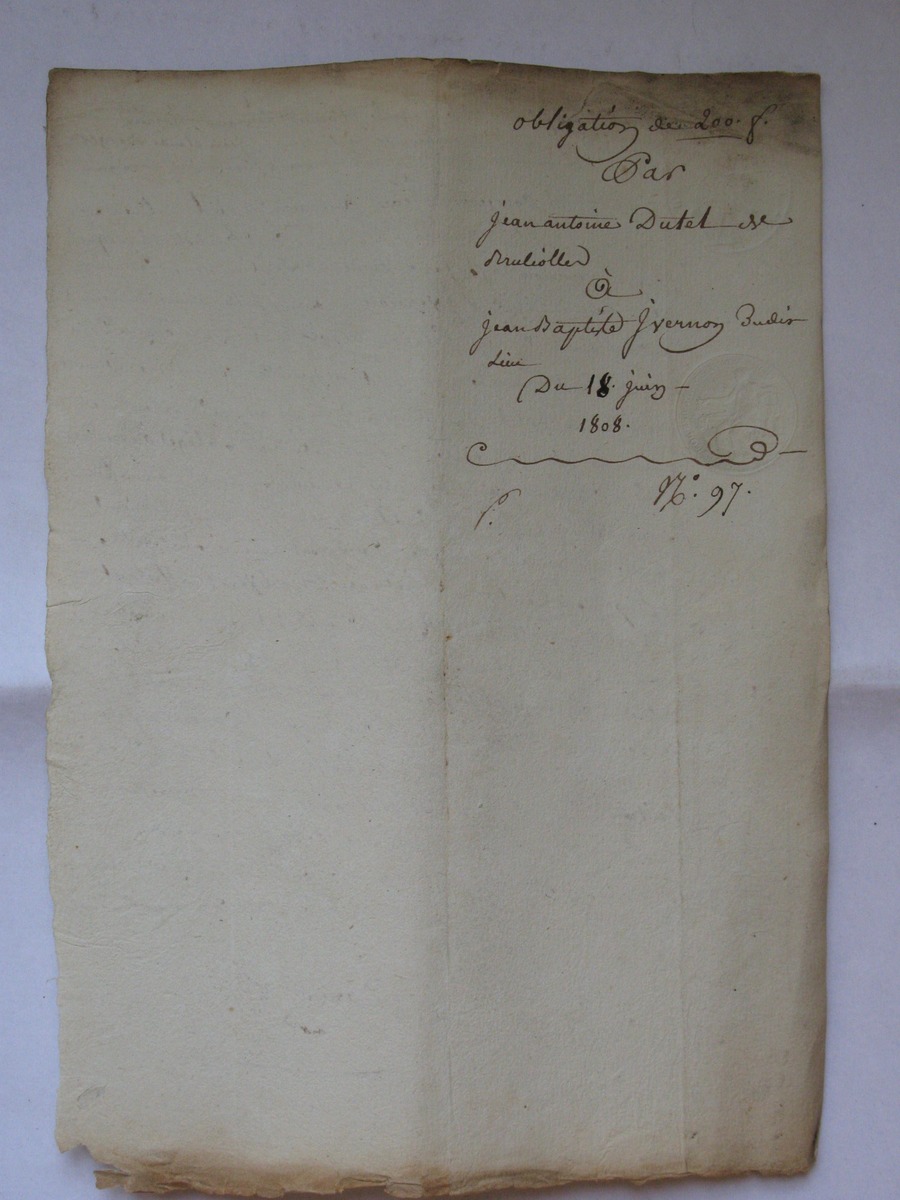 obligation de 200. f.
Par
jean antoine Dutel de
Brulioller
à
jean Baptiste Jvernon Dudit
Lieu
Du 18. juin
1808.
N.° 97.